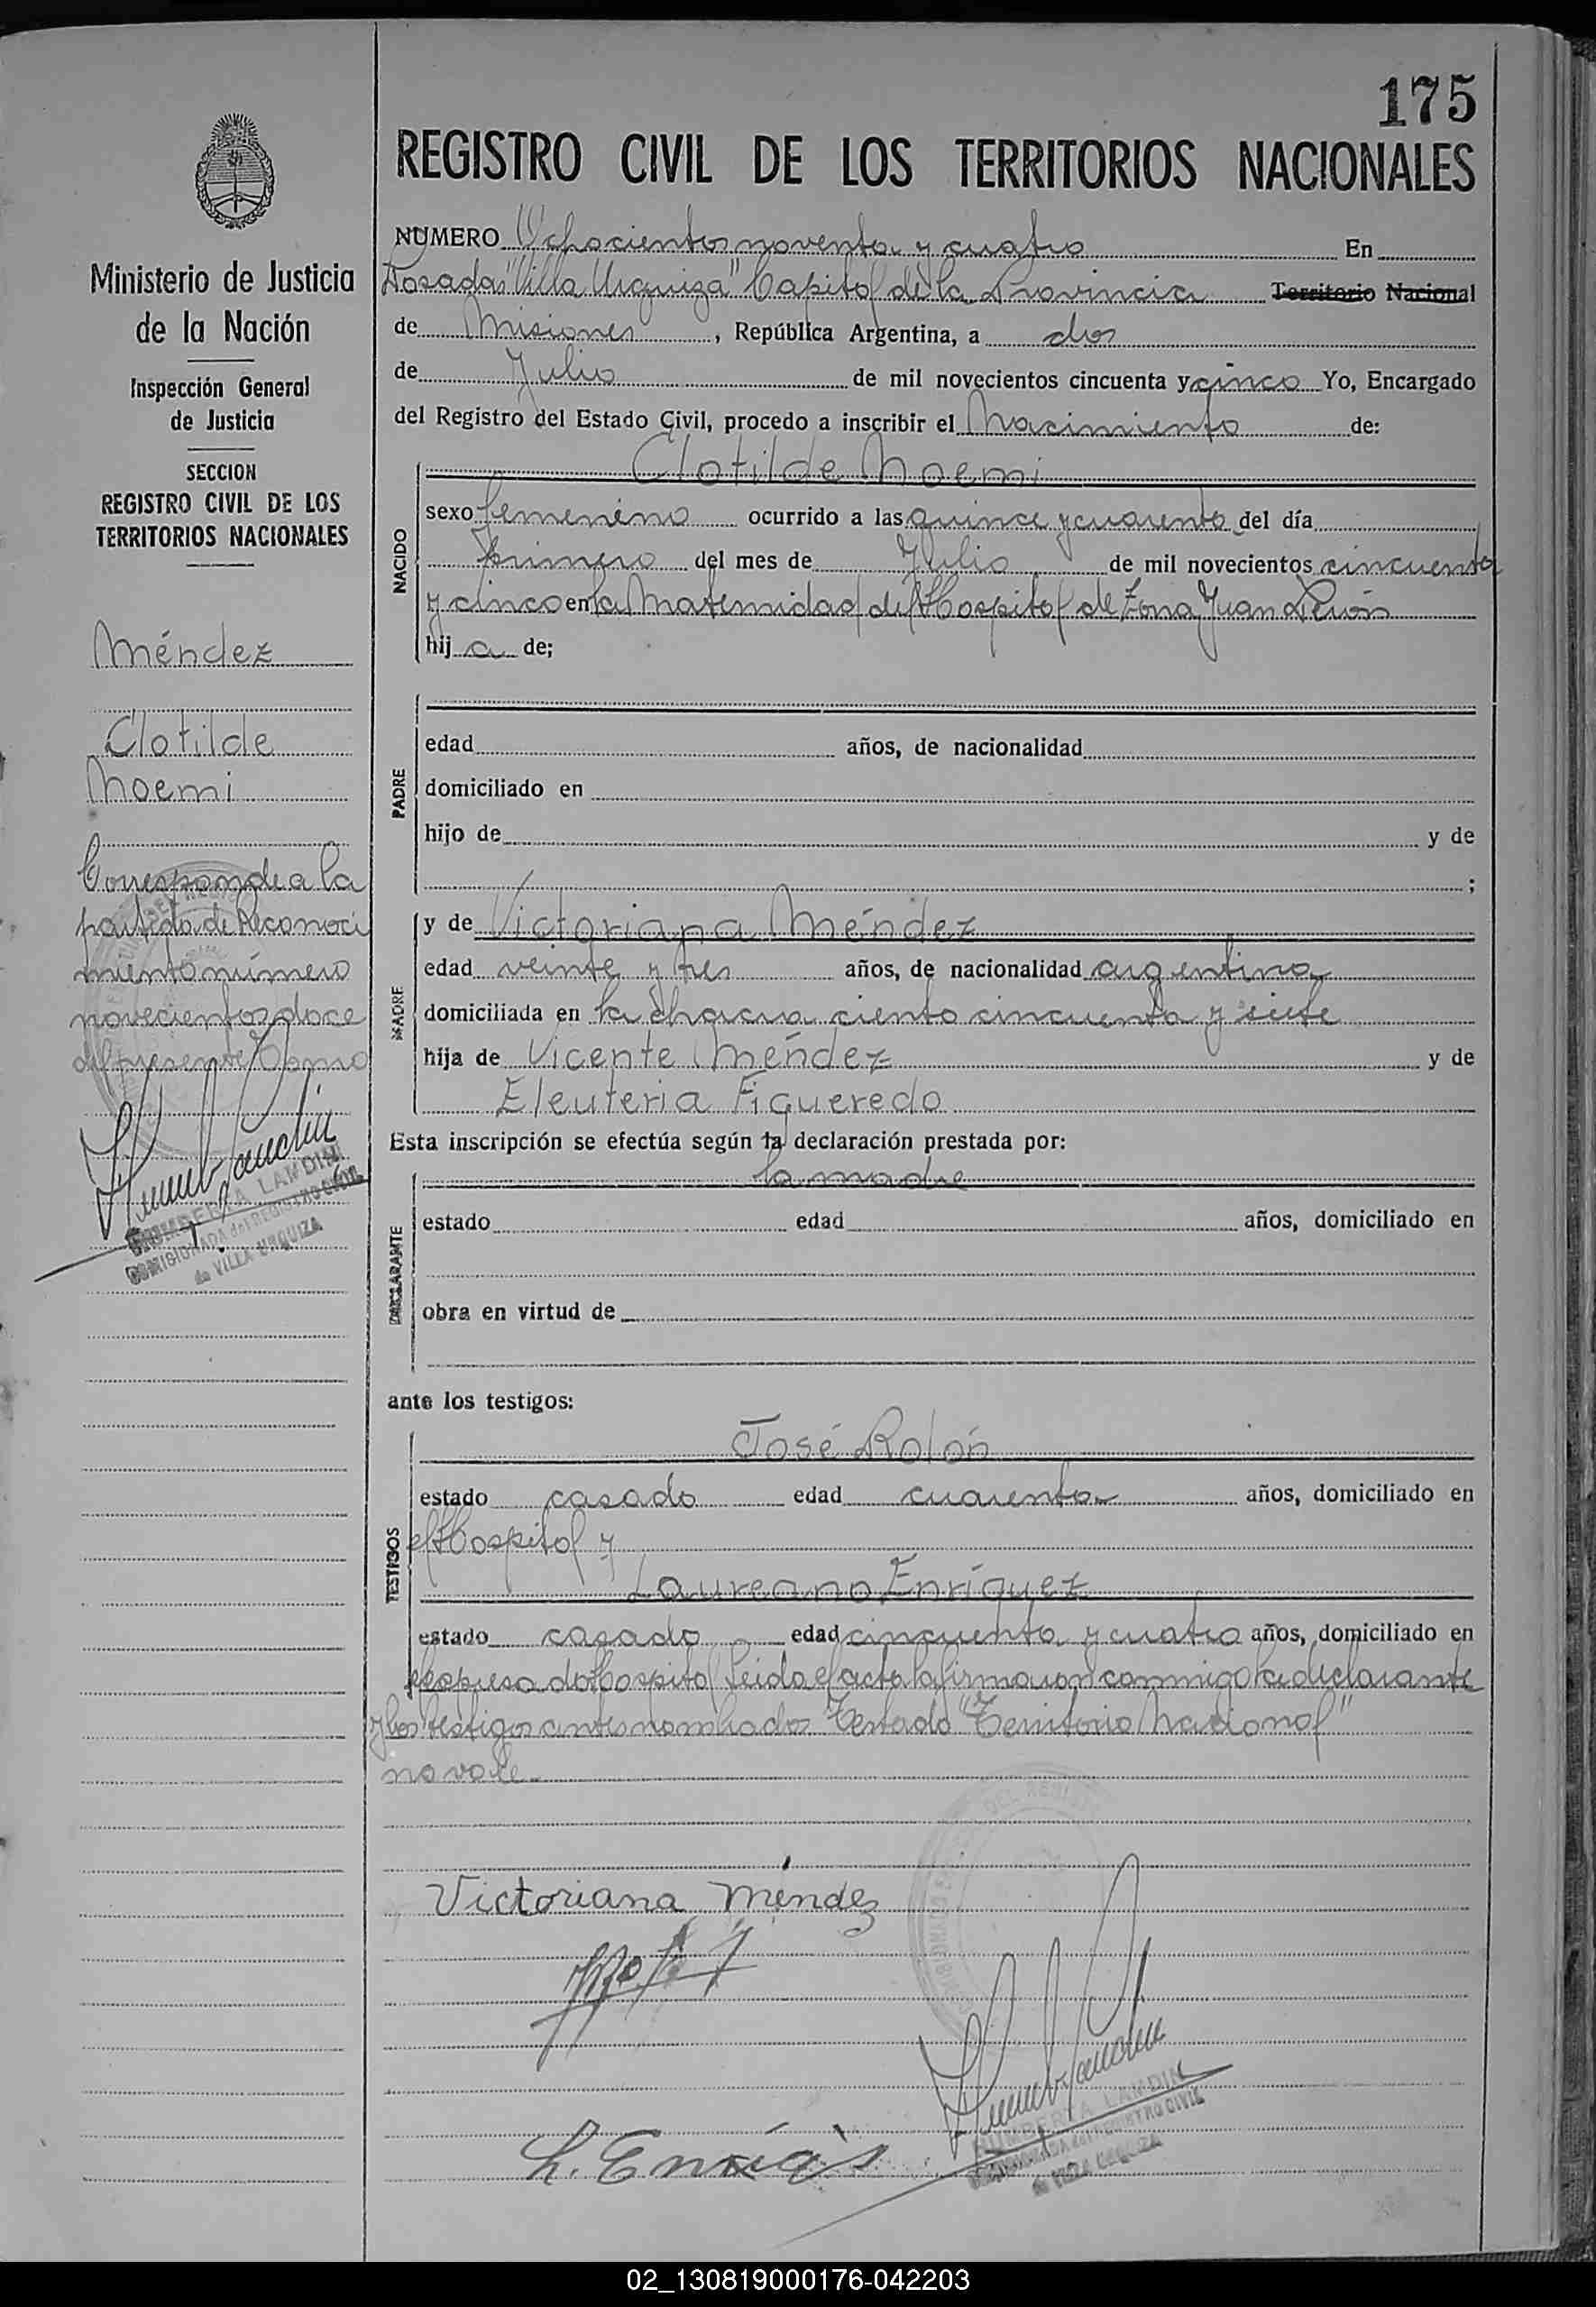 175
REGISTRO CIVIL DE LOS TERRITORIOS NACIONALES
Ministerio de Justicia
de la Nación
Inspección General
de Justicia
SECCION
REGISTRO CIVIL DE LOS
TERRITORIOS NACIONALES
Méndez
Clotilde
Noemi
Corresponde a la
partida de Reconoci
miento número
novecientos doce
del presente Tomo
HUMBERTA LANDIN
COMISIONADA del REGISTRO CIVIL
de VILLA URQUIZA
NUMERO Ochocientos noventa y cuatro En
Posadas "Villa Urquiza" Capital de la Provincia Territorio Nacional
de Misiones, República Argentina, a dos
de Julio de mil novecientos cincuenta y cinco Yo, Encargado
del Registro del Estado Civil, procedo a inscribir el Nacimiento de:
NACIDO
Clotilde Noemi
sexo femenino ocurrido a las quince y cuarenta del día
primero del mes de Julio de mil novecientos cincuenta
y cinco en la Maternidad del Hospital de Zona Juan Perón
hij a de;
PADRE
edad años, de nacionalidad
domiciliado en
hijo de y de
;
MADRE
y de Victoriana Méndez
edad veinte y tres años, de nacionalidad argentina
domiciliada en la chacra ciento cincuenta y siete
hija de Vicente Méndez y de
Eleuteria Figueredo
Esta inscripción se efectúa según la declaración prestada por:
DECLARANTE
la madre
estado edad años, domiciliado en
obra en virtud de
ante los testigos:
TESTIGOS
José Rolón
estado casado edad cuarenta años, domiciliado en
el Hospital y
Laureano Enríquez
estado casado edad cincuenta y cuatro años, domiciliado en
el expresado Hospital Leida el acta la firmaron conmigo la declarante
y los testigos antes nombrados Testado "Territorio Nacional"
no vale
Victoriana Méndez
HUMBERTA LANDIN
COMISIONADA del REGISTRO CIVIL
de VILLA URQUIZA
02_130819000176-042203